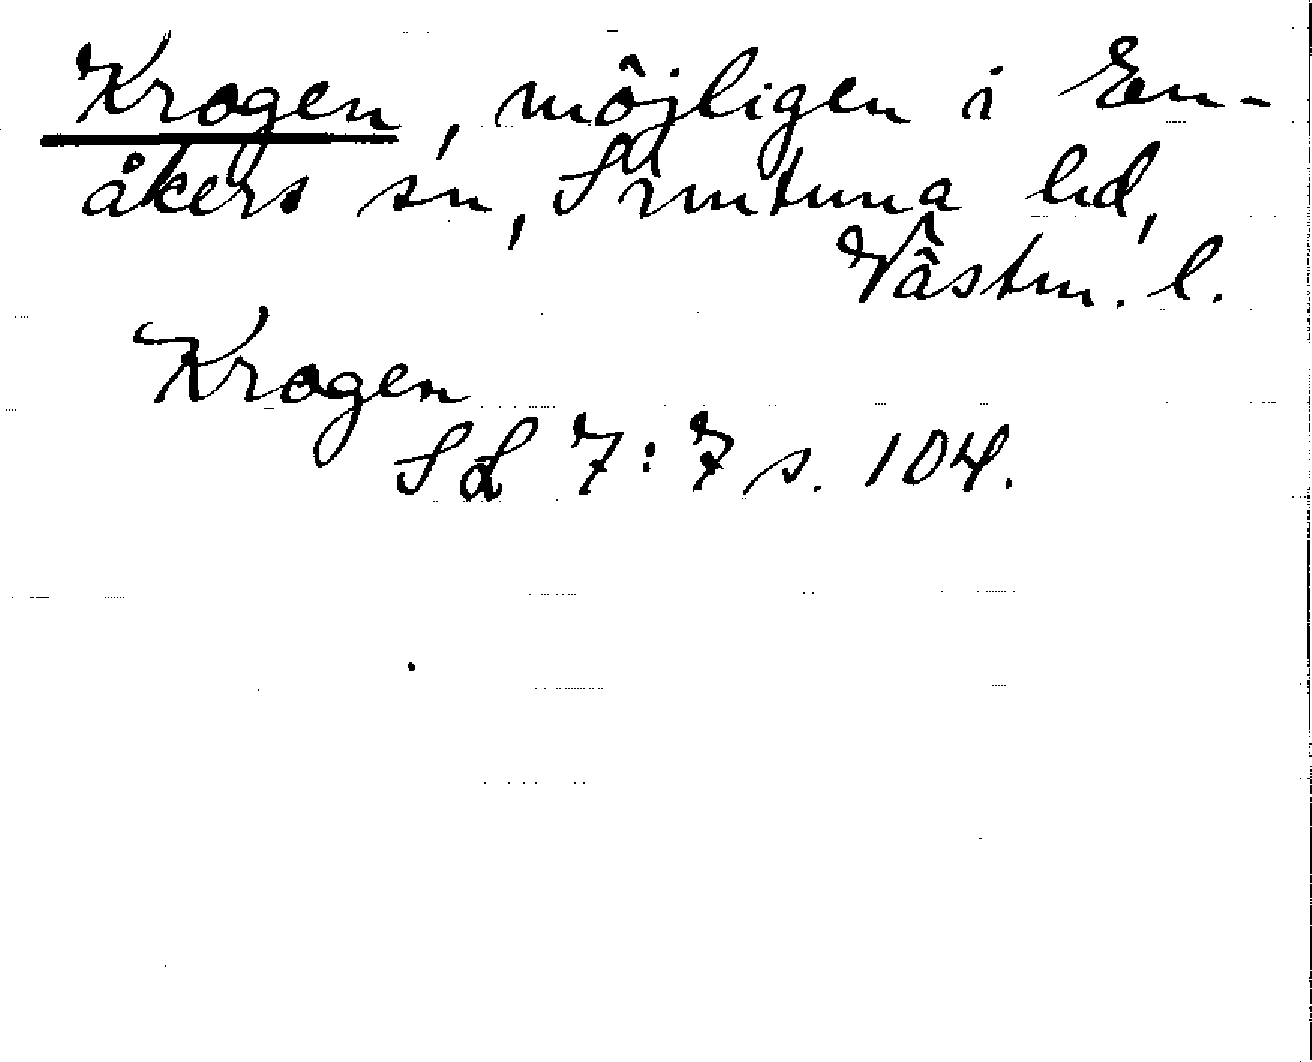 Krogen, möjligen i En-
åkers sn, Simtuna hd,
Västm. l.
Krogen
SL 7:7 s. 104.